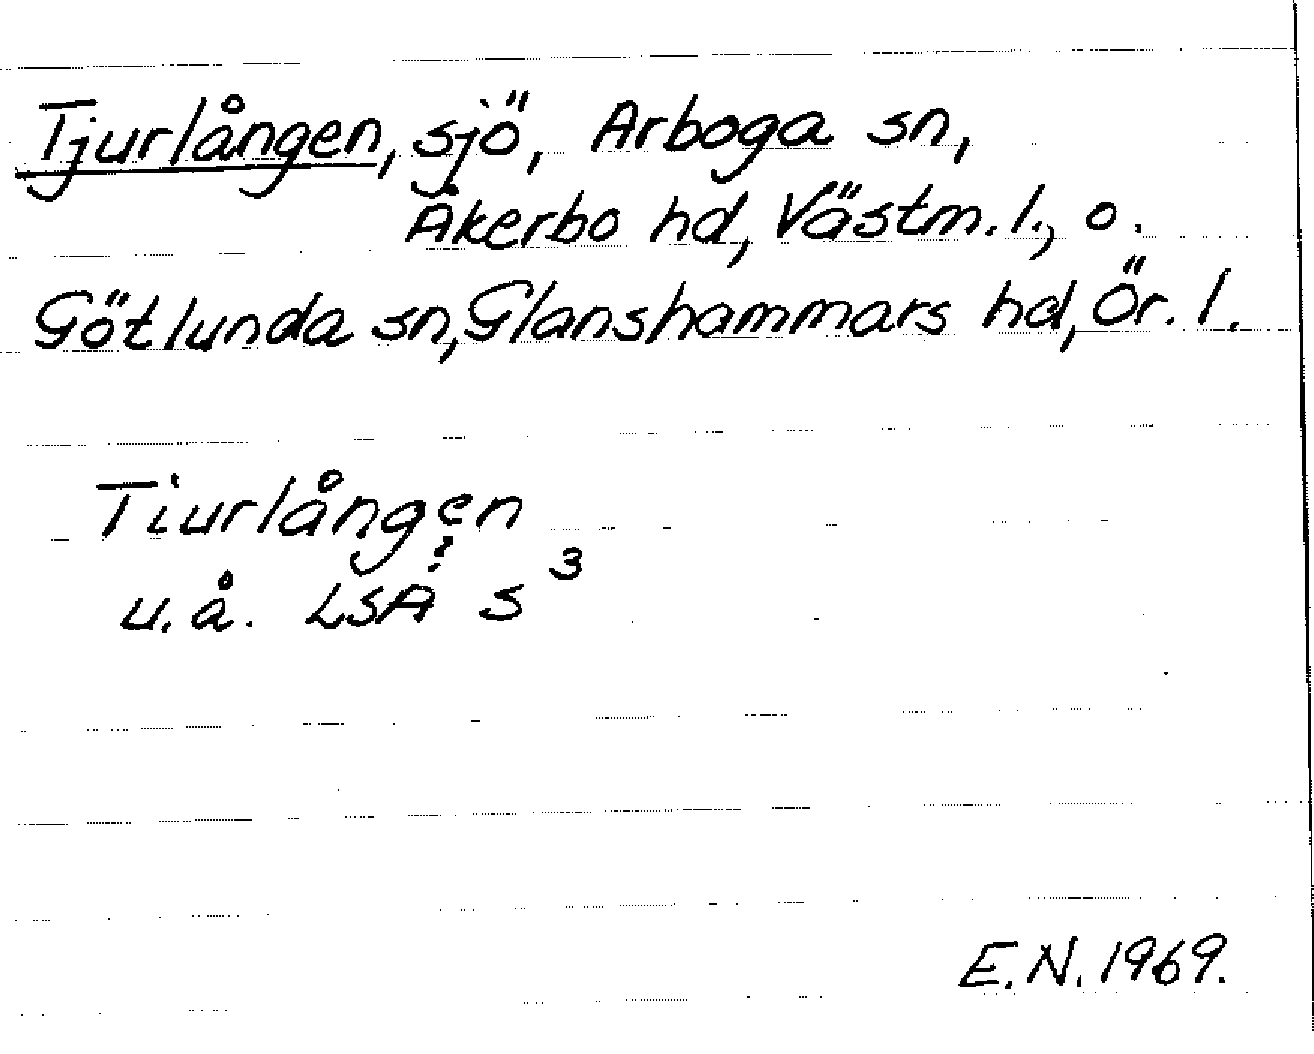 Tjurlången, sjö, Arboga sn,
Åkerbo hd, Västm. l., o.
Götlunda sn, Glanshammars hd, Ör. l.
Tiurlången
u.å. LSA S 3
E.N. 1969.